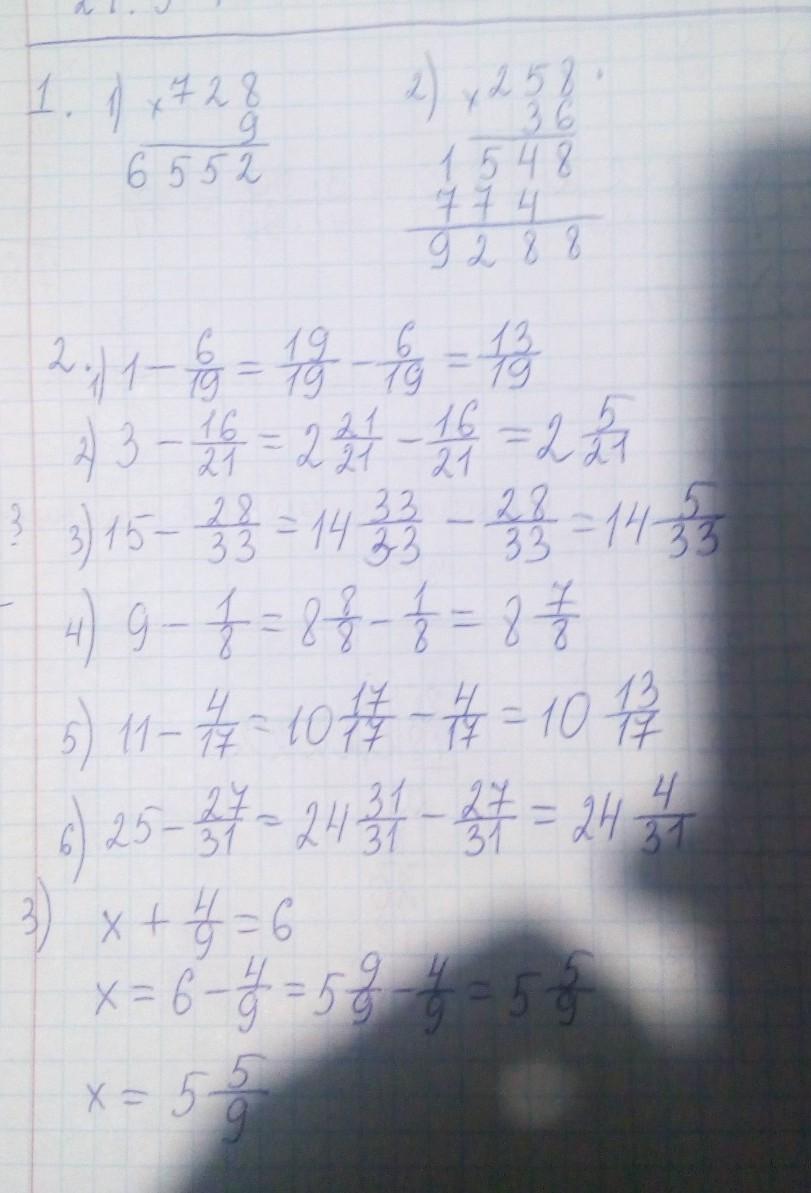 1. 1) × 728
9
6552
2) × 258
36
1548
774
9288
2. 1) 1 - 6/19 = 19/19 - 6/19 = 13/19
2) 3 - 16/21 = 2 21/21 - 16/21 = 2 5/21
3) 15 - 28/33 = 14 33/33 - 28/33 = 14 5/33
4) 9 - 1/8 = 8 8/8 - 1/8 = 8 7/8
5) 11 - 4/17 = 10 17/17 - 4/17 = 10 13/17
6) 25 - 27/31 = 24 31/31 - 27/31 = 24 4/31
3) x + 4/9 = 6
x = 6 - 4/9 = 5 9/9 - 4/9 = 5 5/9
x = 5 5/9